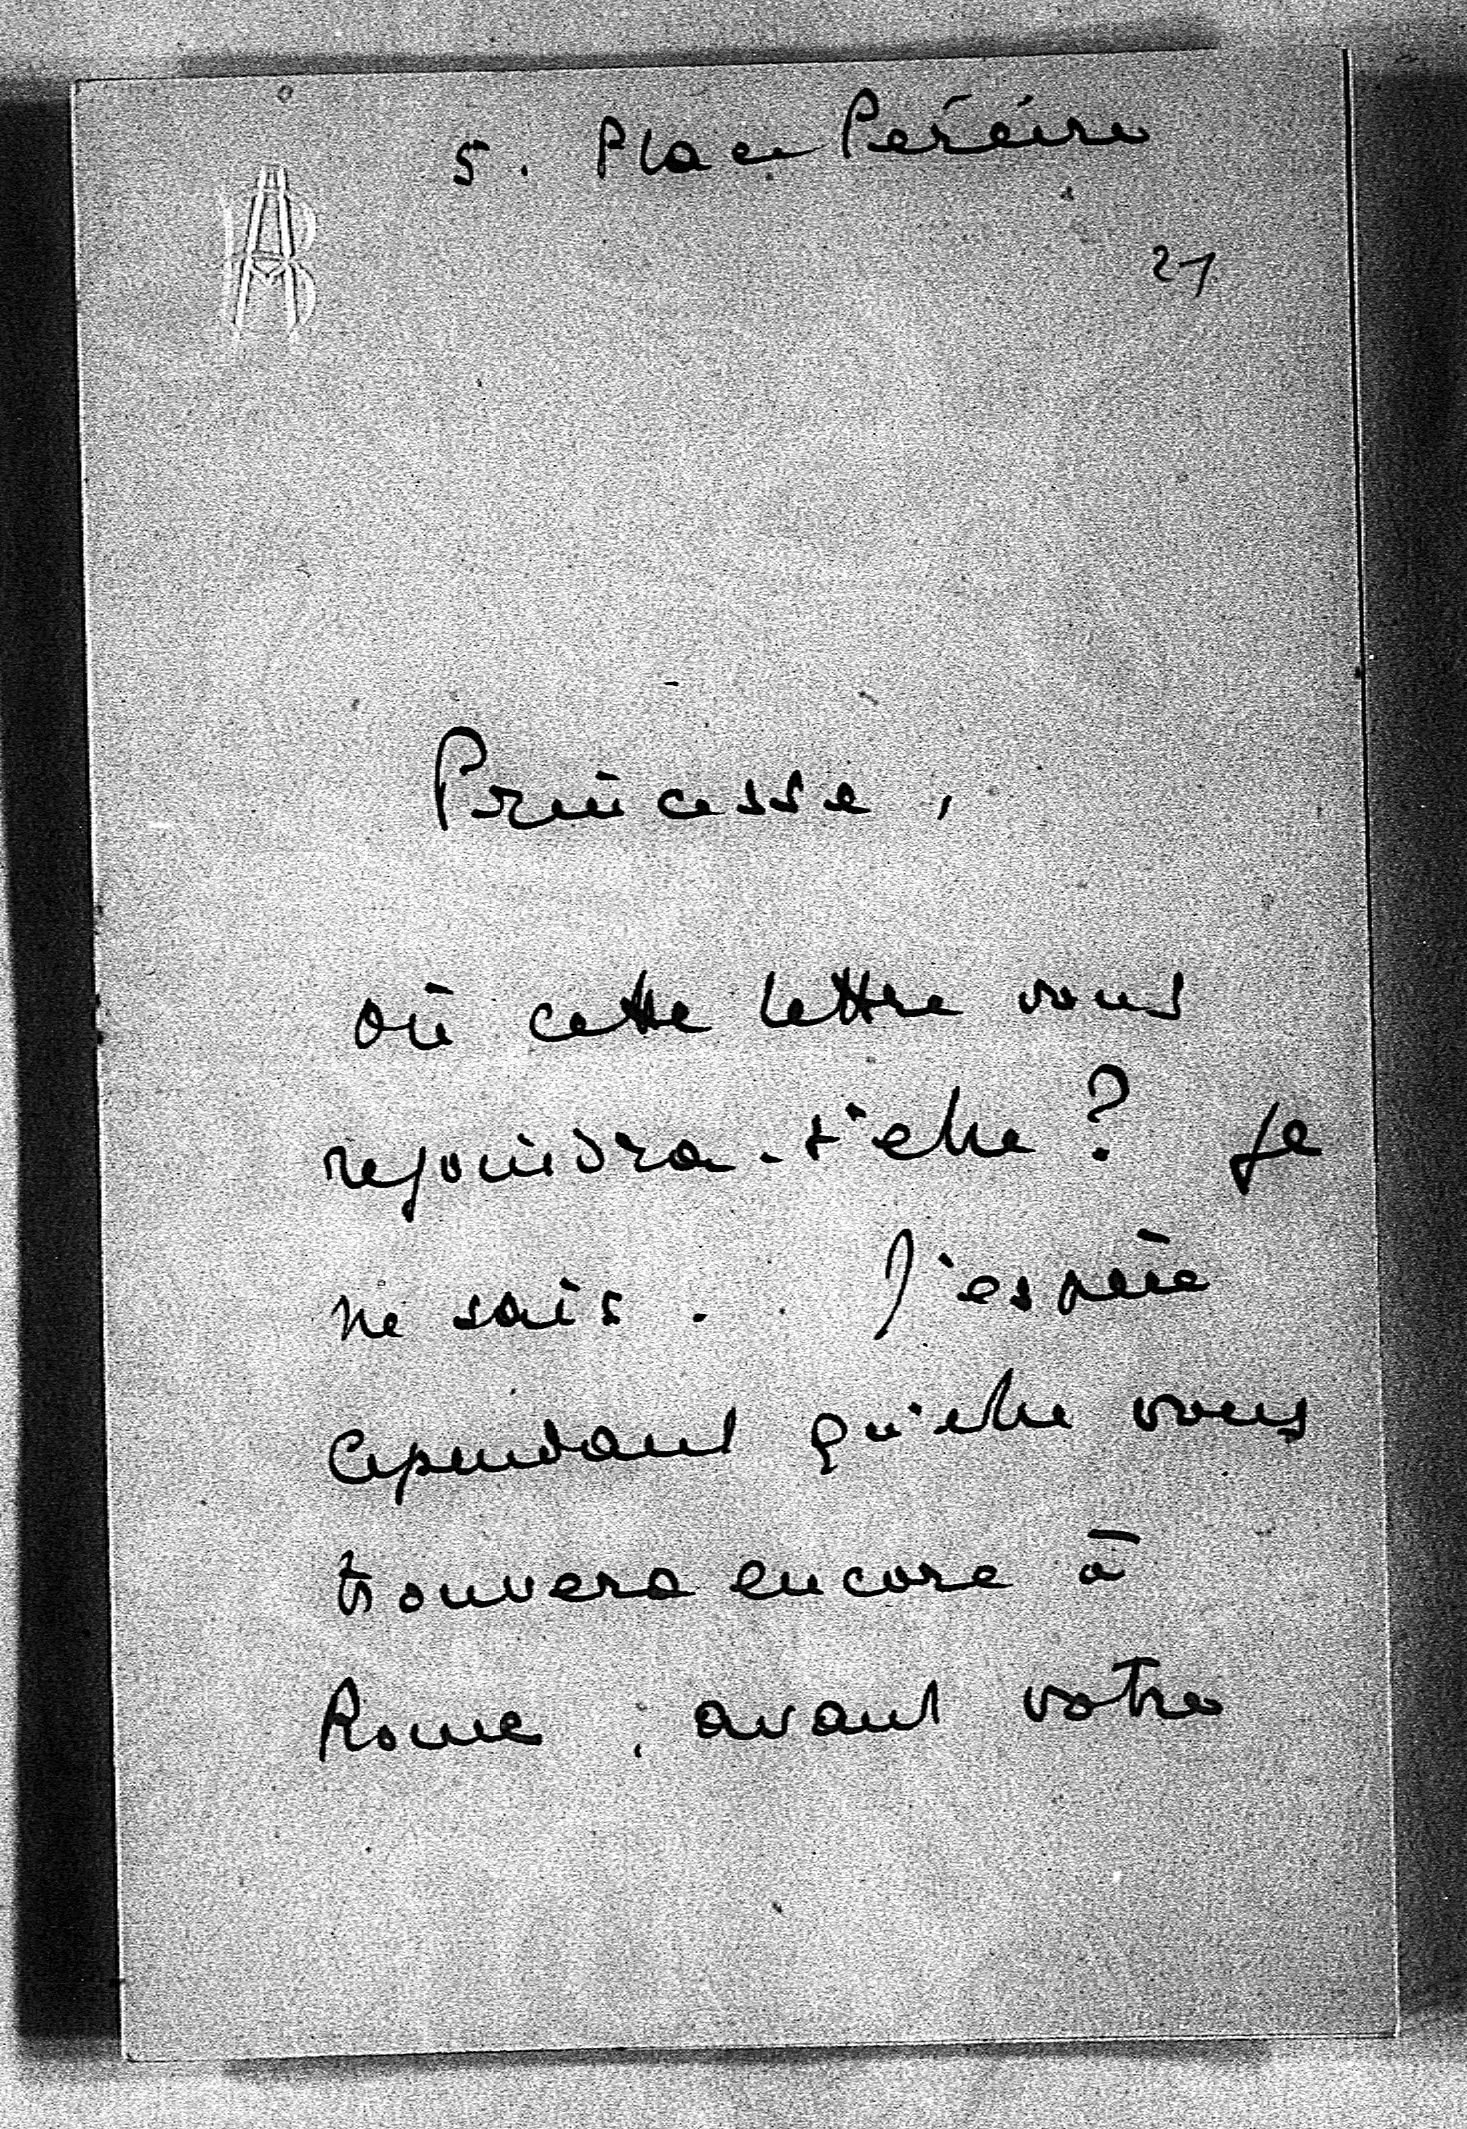 5. Place Pereire
AB
27
Princesse,
où cette lettre vous
rejoindra-t'elle ? Je
ne sais. J'espère
cependant qu'elle vous
trouvera encore à
Rome, avant votre